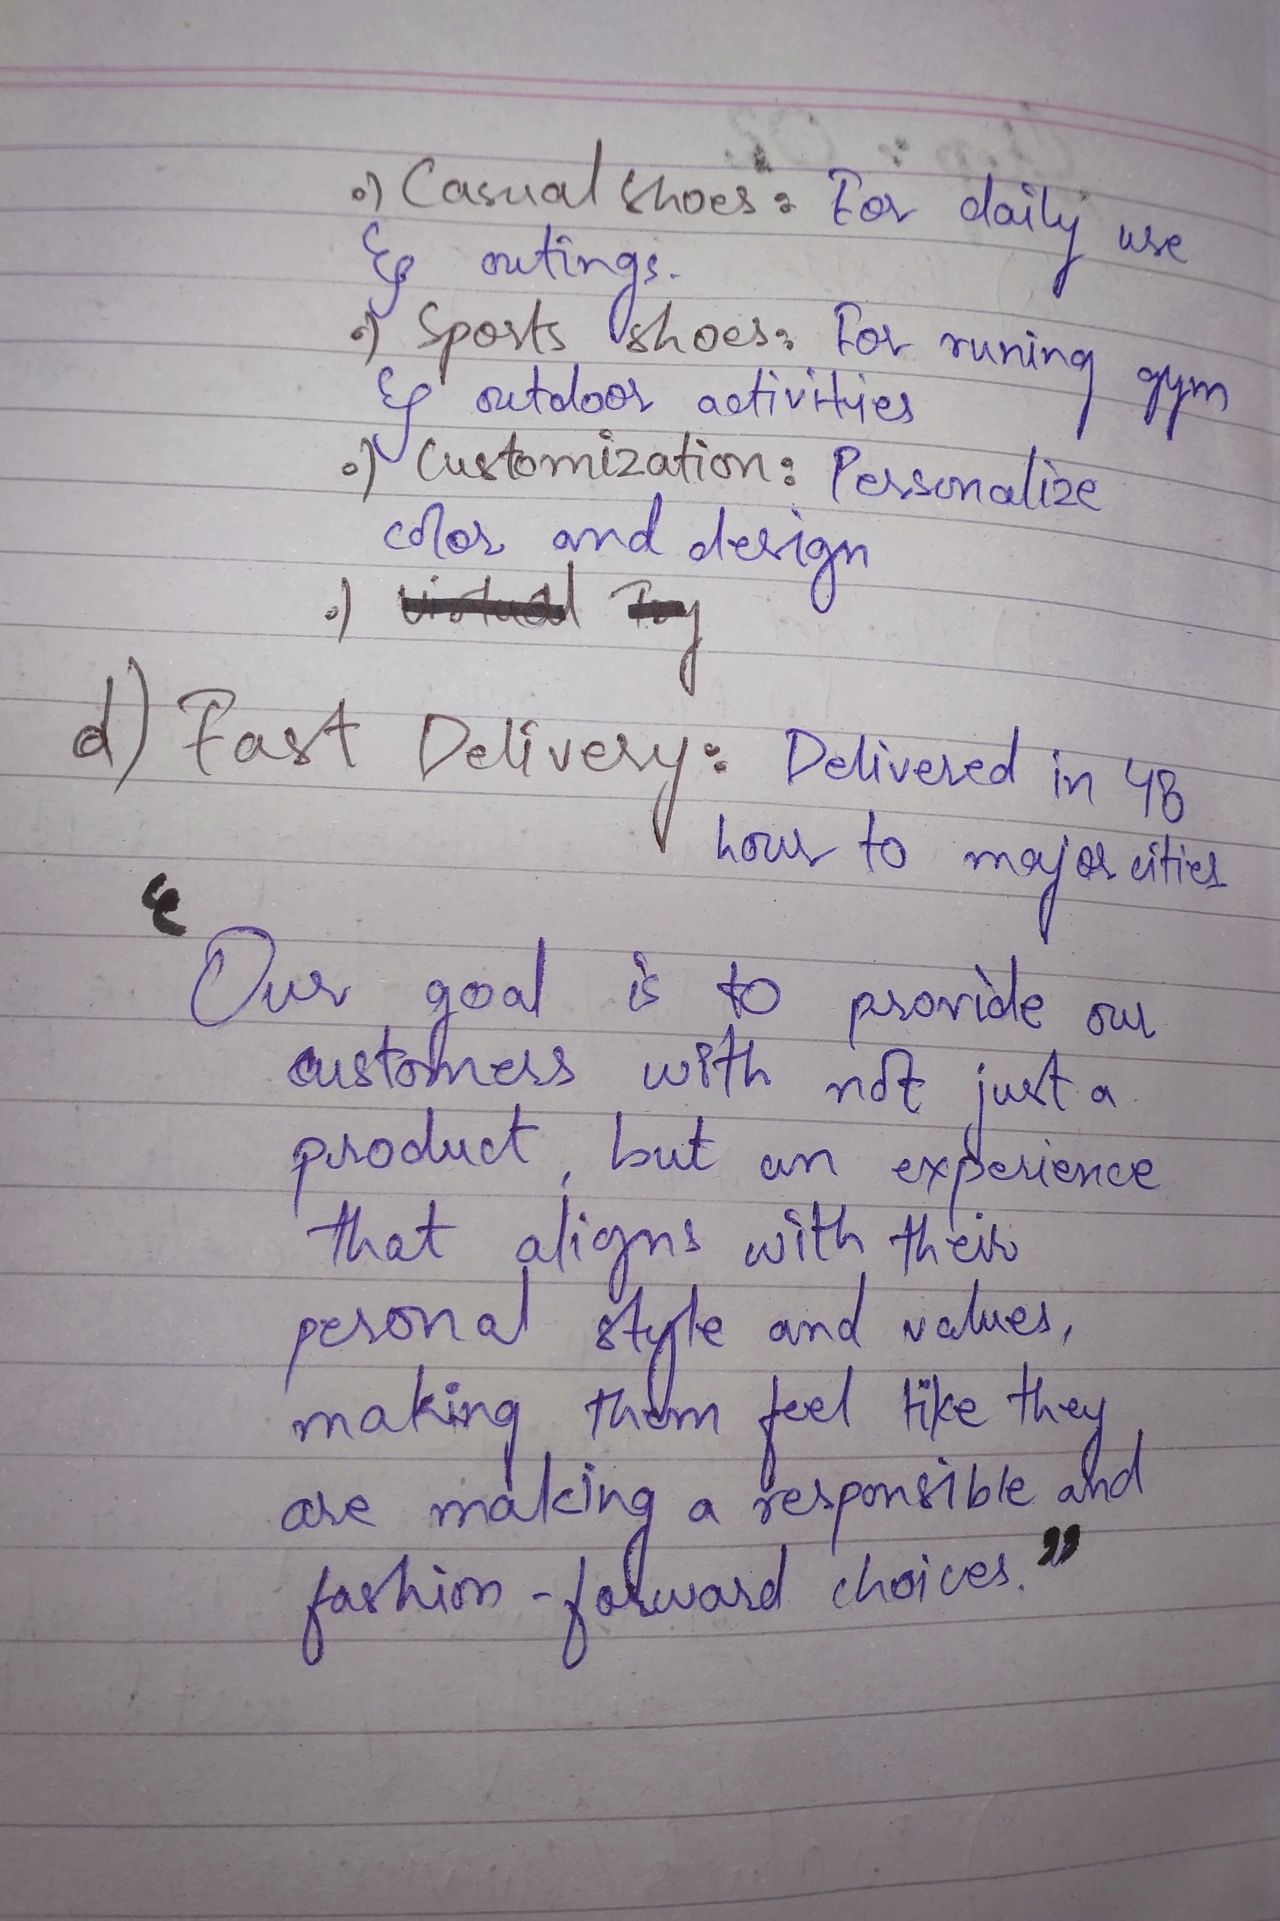 •) Casual shoes: For daily use
& outings.
•) Sports shoes: For runing gym
& outdoor activities
•) Customization: Personalize
color and design
•) Virtual Try
d) Fast Delivery: Delivered in 48
hour to major cities
“Our goal is to provide our
customers with not just a
product, but an experience
that aligns with their
pesonal style and values,
making them feel like they
are making a responsible and
fashion-forward choices.”